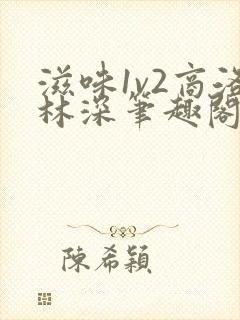 滋味1v2高洛
林深笔趣阁
陈希颖